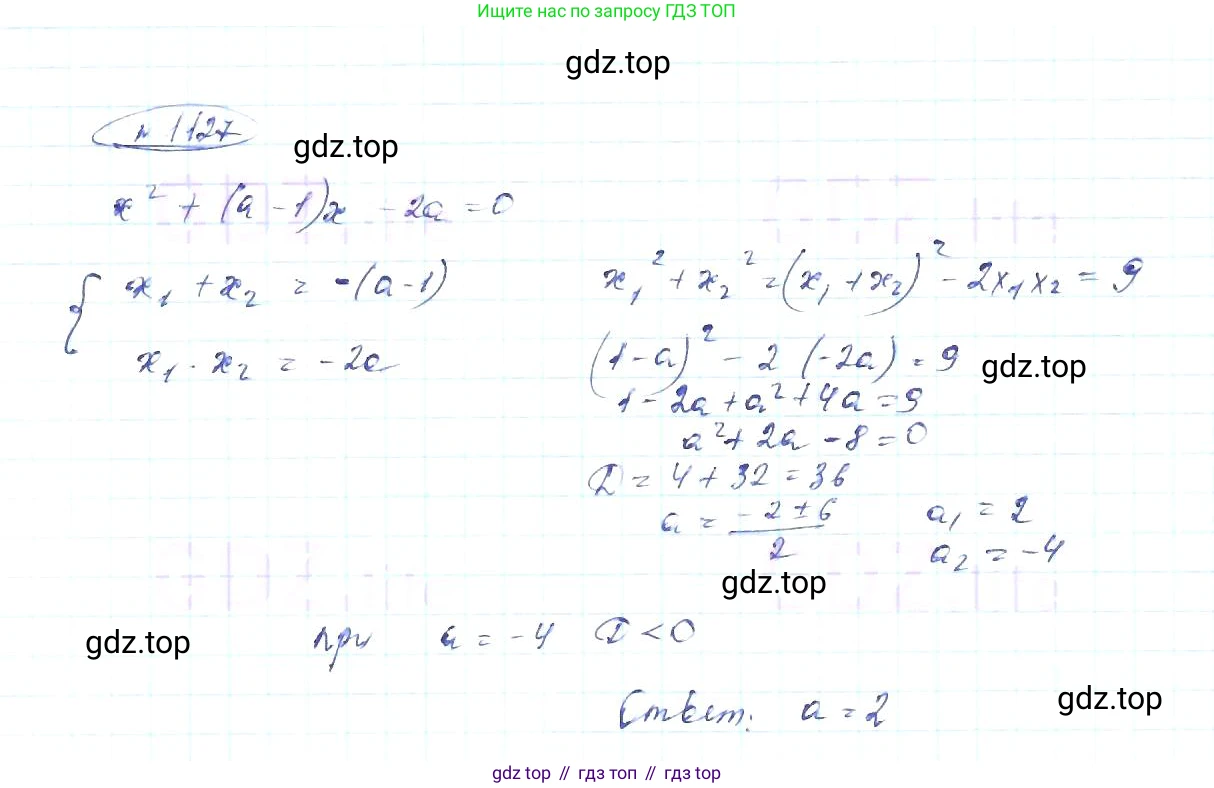 Ищите нас по запросу ГДЗ ТОП
gdz.top
n 1127
gdz.top
x² + (a - 1)x - 2a = 0
{ x₁ + x₂ = -(a-1)
x₁ · x₂ = -2a
x₁² + x₂² = (x₁ + x₂)² - 2x₁x₂ = 9
(1-a)² - 2 (-2a) = 9
gdz.top
1 - 2a + a² + 4a = 9
a² + 2a - 8 = 0
D = 4 + 32 = 36
a = (-2 ± 6)/2 a₁ = 2
a₂ = -4
gdz.top
gdz.top
при a = -4 D < 0
Ответ: a = 2
gdz.top
gdz top // гдз топ // gdz top